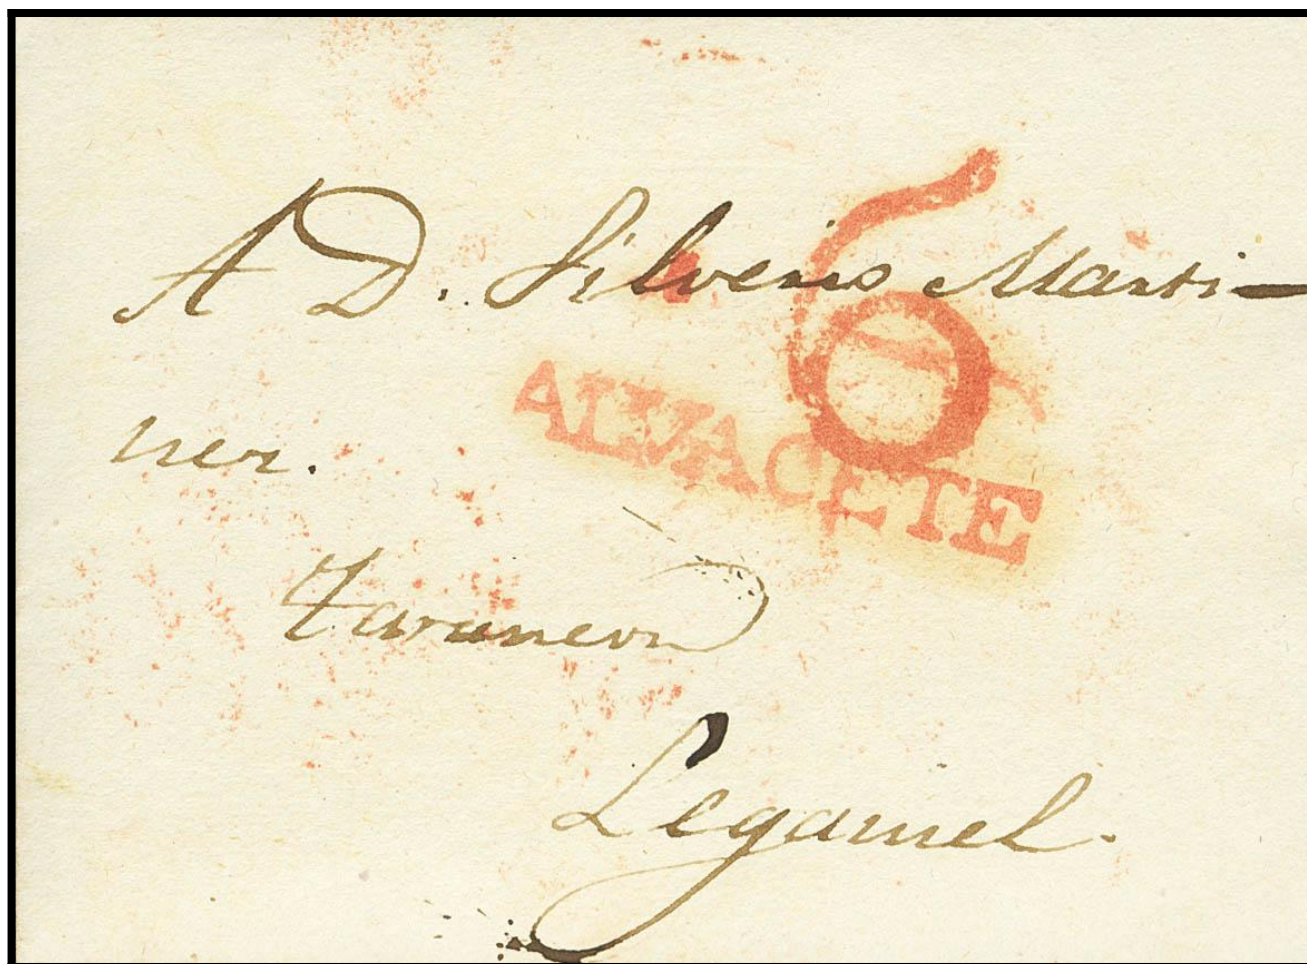 A D. Silverio Marti-
nez.
6
ALVACETE
Tarancon
Legamiel.